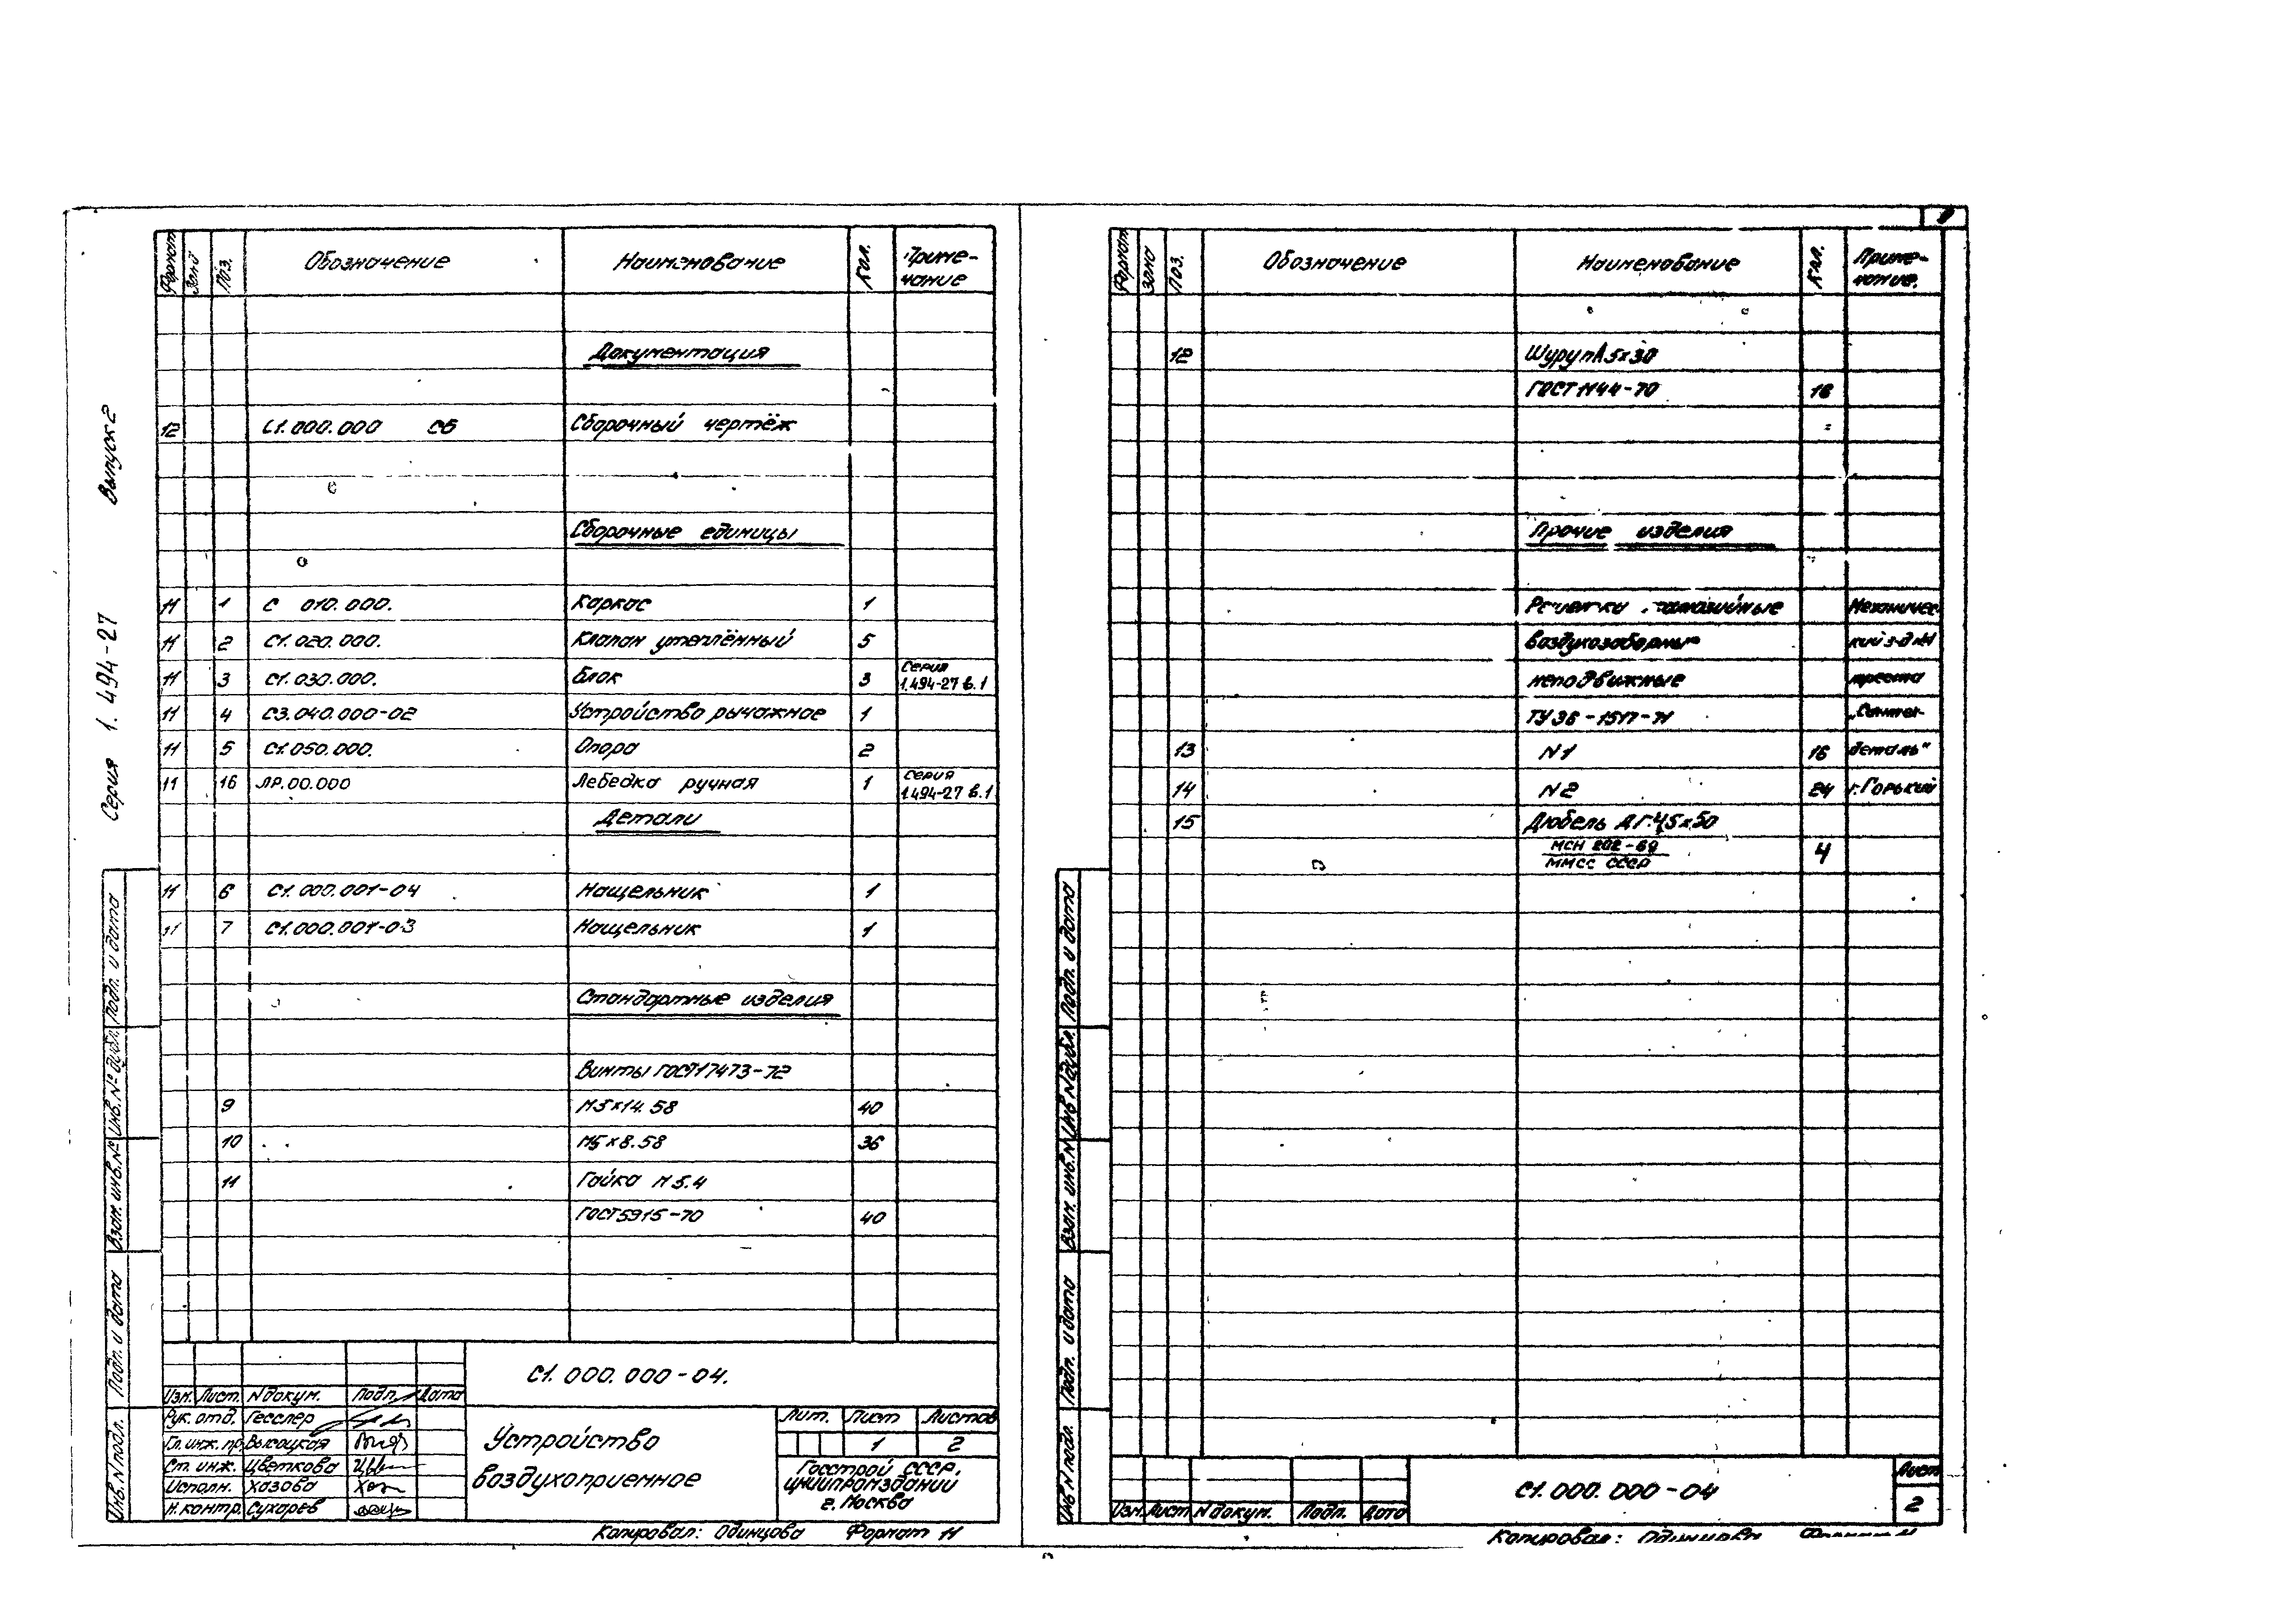 Серия 1.494-27 Выпуск 2
Формат Зона Поз. Обозначение Наименование Кол. Приме-
чание
Документация
12 С1.000.000 СБ Сборочный чертёж
Сборочные единицы
11 1 С 010.000. Каркас 1
11 2 С1.020.000. Клапан утеплённый 5
11 3 С1.030.000. Блок 3 Серия
1.494-27 в.1
11 4 С3.040.000-02 Устройство рычажное 1
11 5 С1.050.000. Опора 2
11 16 ЛР.00.000 Лебедка ручная 1 Серия
1.494-27 в.1
Детали
11 6 С1.000.001-04 Нащельник 1
11 7 С1.000.001-03 Нащельник 1
Стандартные изделия
Винты ГОСТ17473-72
9 М5х14.58 40
10 М5х8.58 36
11 Гайка М5.4
ГОСТ5915-70 40
Подп. и дата
Инв.№ дубл.
Взам. инв.№
Подп. и дата
Инв.N подл.
С1.000.000-04.
Изм. Лист. N докум. Подп. Дата
Рук. отд. Гесслер
Гл. инж. пр. Высоцкая
Ст. инж. Цветкова
Исполн. Хазова
Н. контр. Сухарев
Устройство
воздухоприемное
Лит. Лист Листов
1 2
Госстрой СССР.
ЦНИИпромзданий
г. Москва
Копировал: Одинцова Формат 11
Формат Зона Поз. Обозначение Наименование Кол. Приме-
чание.
12 Шуруп А5х30
ГОСТ 1144-70 16
Прочие изделия
воздухозаборные
неподвижные
ТУ36-1517-71
Механичес-
кий з-д №1
треста
„Сантех-
деталь"
г. Горький
13 N1 16
14 N2 24
15 Дюбель ДГ.4,5х50
МСН 202-69
ММСС СССР 4
Подп. и дата
Инв N дубл.
Взам. инв.N
Подп. и дата
Инв N подл.
Изм. Лист N докум. Подп. Дата
С1.000.000-04
Лист
2
Копировал: